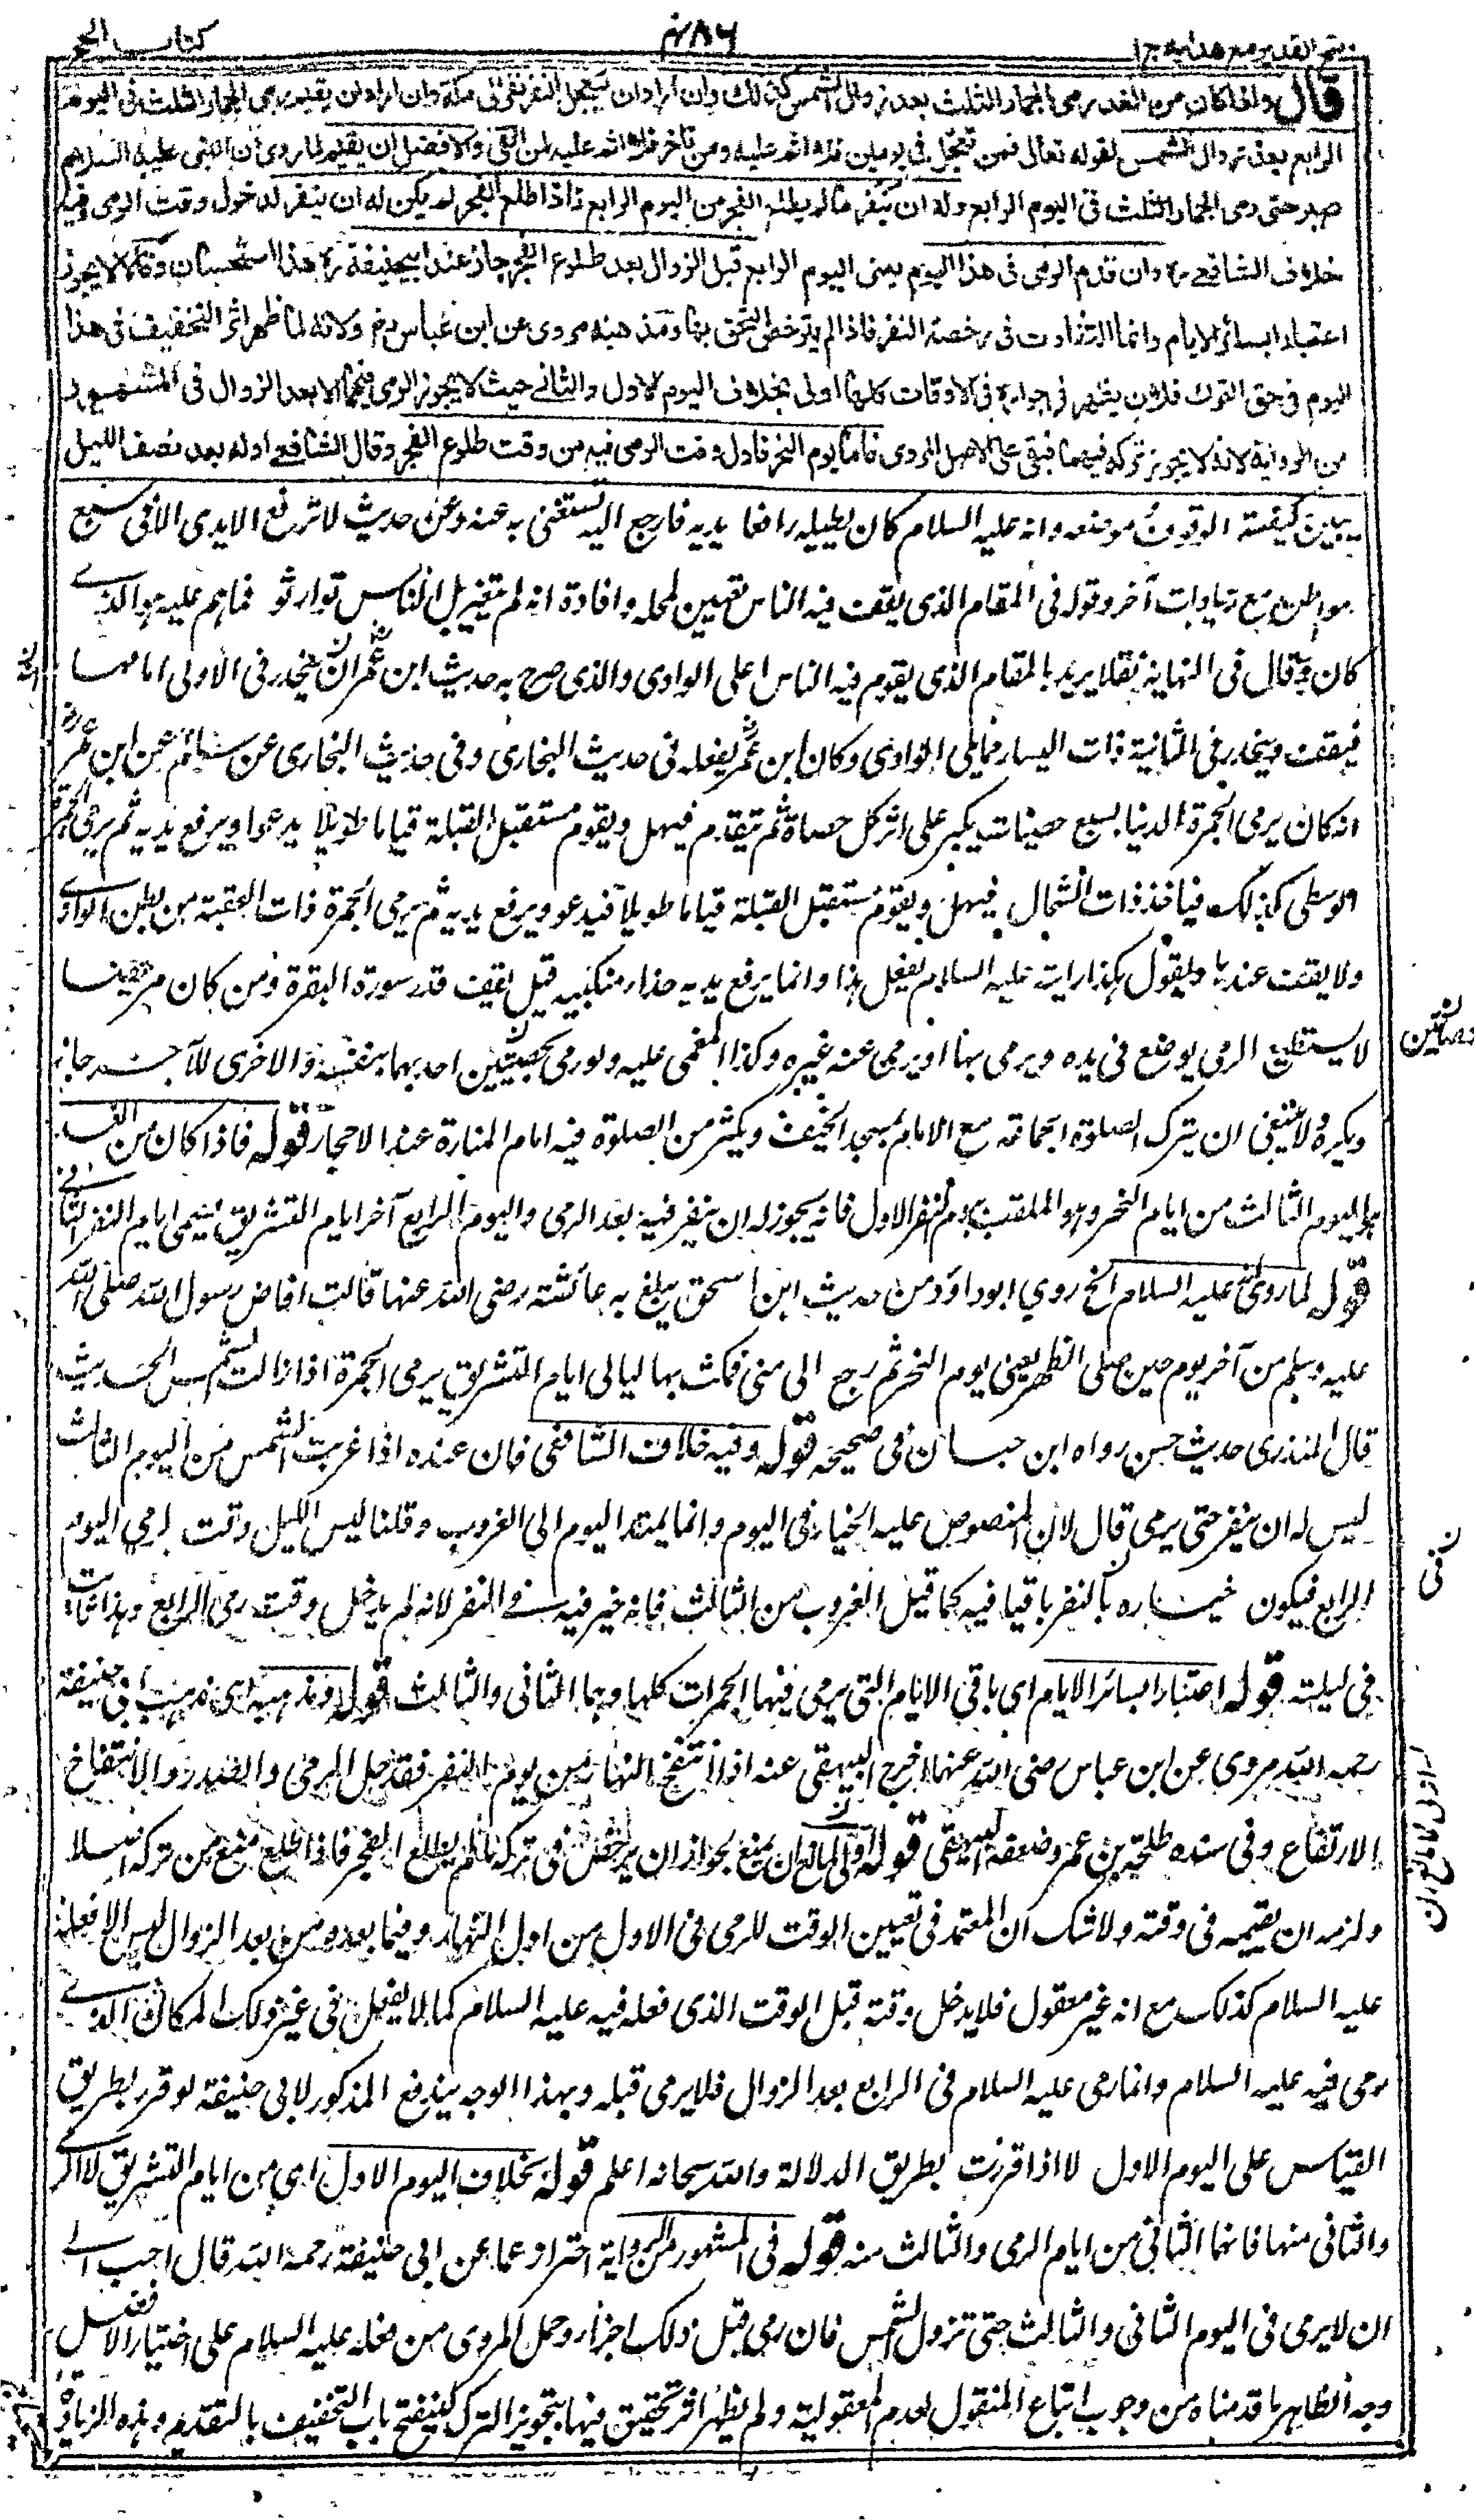 فتح القدير مع هدايه ج ١
٤٨٦
كتاب الحج
قال واذا كان من الغد رمى الجمار الثلث بعد زوال الشمس كذلك وان اراد ان يتعجل النفر نفر الى مكة وان اراد ان يقيم رمى الجمار الثلث فى اليوم
الرابع بعد زوال الشمس لقوله تعالى فمن تعجل فى يومين فلا اثم عليه ومن تأخر فلا اثم عليه لمن اتقى والافضل ان يقيم لما روى ان النبى عليه السلام
صبر حتى رمى الجمار الثلث فى اليوم الرابع وله ان ينفر ما لم يطلع الفجر من اليوم الرابع فاذا طلع الفجر لم يكن له ان ينفر لدخول وقت الرمى وفيه
خلاف الشافعے رح وان قدم الرمى فى هذا اليوم يعنى اليوم الرابع قبل الزوال بعد طلوع الفجر جاز عند ابيحنيفة رح هذا استحسان وقالا لا يجوز
اعتبارا بسائر الايام وانما التفاوت فى رخصة النفر فاذا لم يترخص التحق بها ومذهبه مروى عن ابن عباس رض ولانه لما ظهر اثر التخفيف فى هذا
اليوم فى حق الترك فلان يظهر فى جوازه فى الاوقات كلها اولى بخلاف اليوم الاول والثانے حيث لا يجوز الرمى فيهما الا بعد الزوال فى المشهور
من الرواية لانه لا يجوز تركه فيهما فبقى على الاصل المروى فاما يوم النحر فاول وقت الرمى فيه من وقت طلوع الفجر وقال الشافعے اوله بعد نصف الليل
يبين كيفية الوقوف موضعه وانه عليه السلام كان يطيله رافعا يديه فارجع اليه تستغنى به عنه وعن حديث لا ترفع الايدى الا فى سبع
مواطن مع زيادات آخر وقوله فى المقام الذى يقف فيه الناس تعيين لمحله وافادة انه لم يتغير بل الناس توارثوه فما هم عليه هو الذے
كان وقال فى النهاية نقلا يريد بالمقام الذى يقوم فيه الناس اعلى الوادى والذى صرح به حديث ابن عمر انه ينحدر فى الاولى امامها
فيقف وينحدر فى الثانية ذات اليسار مما يلى الوادى وكان ابن عمر يفعله فى حديث البخارى وفى حديث البخارى عن سالم عن ابن عمر
انه كان يرمى الجمرة الدنيا بسبع حصيات يكبر على اثر كل حصاة ثم يتقدم فيسهل ويقوم مستقبل القبلة قياما طويلا يدعوا ويرفع يديه ثم يرمى الجمرة
الوسطى كذلك فياخذ ذات الشمال فيسهل ويقوم مستقبل القبلة قياما طويلا فيدعو ويرفع يديه ثم يرمى الجمرة ذات العقبة من بطن الوادى
ولا يقف عندها ويقول هكذا رايته عليه السلام يفعل هذا وانما يرفع يديه حذاء منكبيه قيل يقف قدر سورة البقرة ومن كان مريضا
لا يستطيع الرمى يوضع فى يده ويرمى بها او يرمى عنه غيره وكذا المغمى عليه ولو رمى بحصيتين احدهما بنفسه والاخرى للآخر جاز
ويكره ولا ينبغى ان يترك الصلوة الجماعة مع الامام بمسجد الخيف ويكثر من الصلوة فيه امام المنارة عند الاحجار قوله فاذا كان من الغد
هو اليوم الثالث من ايام النحر وهو الملقب بيوم النفر الاول فانه يجوز له ان ينفر فيه بعد الرمى واليوم الرابع آخر ايام التشريق يسمى ايام النفر الثانى
قوله لما روى النبى عليه السلام الخ روي ابو داود من حديث ابن اسحق يبلغ به عائشة رضى الله عنها قالت افاض رسول الله صلى الله
عليه وسلم من آخر يوم حين صلى الظهر يعنى يوم النحر ثم رجع الى منى فمكث بها ليالى ايام التشريق يرمى الجمرة اذا زالت الشمس الحديث
قال المنذرى حديث حسن رواه ابن حبان فى صحيحه قوله وفيه خلاف الشافعى فان عنده اذا غربت الشمس من اليوم الثالث
ليس له ان ينفر حتى يرمى قال لان المنصوص عليه الخيار فى اليوم وانما يمتد اليوم الى الغروب وقلنا ليس الليل وقت لرمي اليوم
الرابع فيكون خياره بالنفر باقيا فيه كما قبل الغروب من الثالث فانه خير فيه فے النفر لانه لم يدخل وقت رمى الرابع وهذا ثابت
فى ليلته قوله اعتبارا بسائر الايام اى باقى الايام التى يرمى فيها الجمرات كلها وهما الثانى والثالث قوله ومذهبه اى مذهب ابى حنيفة
رحمه الله مروى عن ابن عباس رضى الله عنهما اخرج البيهقى عنه اذا انتفخ النهار من يوم النفر فقد حل الرمى والصدر والانتفاخ
الارتفاع وفى سنده طلحة بن عمر وضعفه البيهقى قوله اولى لمانع ان يمنع بجواز ان يرخص فى تركه ما لم يطلع الفجر فاذا طلع منع من تركه اصلا
ولزمه ان يقيمه فى وقته ولا شك ان المعتمد فى تعيين الوقت للرمى فى الاول من اول النهار وفيما بعده من بعد الزوال ليس الا فعله
عليه السلام كذلك مع انه غير معقول فلا يدخل وقته قبل الوقت الذى فعله فيه عليه السلام كما لا يفعل فى غير ذلك المكان الذے
رمى فيه عليه السلام وانما رمى عليه السلام فى الرابع بعد الزوال فلا يرمى قبله وبهذا الوجه يندفع المذكور لابى حنيفة لو قرر بطريق
القياس على اليوم الاول لا اذا قررت بطريق الدلالة والله سبحانه اعلم قوله بخلاف اليوم الاول اى من ايام التشريق لا الرمى
والثانى منها فانهما الثانى من ايام الرمى والثالث منه قوله فى المشهور من الرواية احتراز عما عن ابى حنيفة رحمه الله قال احب الے
ان لا يرمى فى اليوم الثانى والثالث حتى تزول الشمس فان رمى قبل ذلك اجزأه وحمل المروى من فعله عليه السلام على اختيار الافضل
وجه الظاهر ما قدمناه من وجوب اتباع المنقول لعدم المعقولية ولم يظهر اثر تخفيف فيها بتجويز الترك لينفتح باب التخفيف بالتقديم وهذه الزيادة